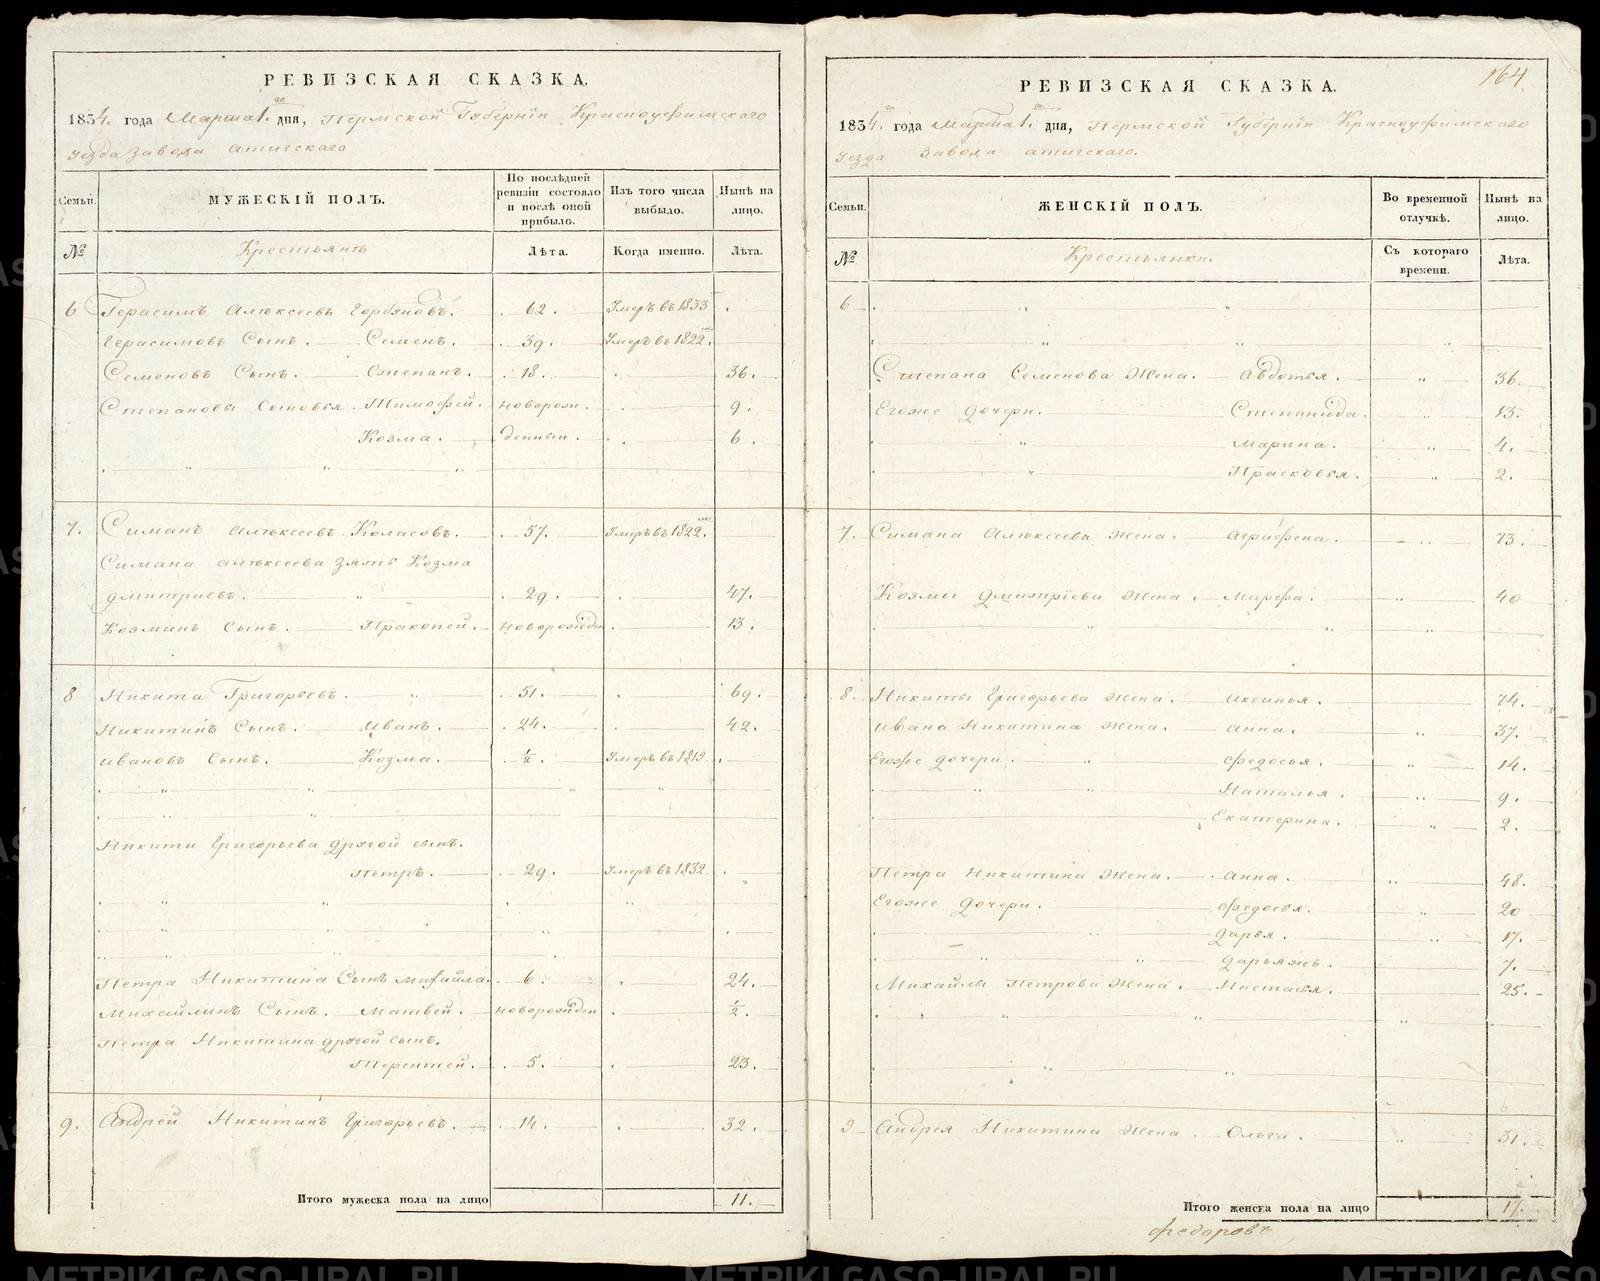 РЕВИЗСКАЯ СКАЗКА.
1834. года Марта 1. го дня, Пермской Губернiи Красноуфимского
уезда Завода Атигского
Семьи. МУЖЕСКIЙ ПОЛЪ. По послѣдней ревизiи состояло и послѣ оной прибыло. Изъ того числа выбыло. Нынѣ на лицо.
№ Крестьянъ Лѣта. Когда именно. Лѣта.
6 Герасимъ Алѣксеевъ Горбуновъ. 62. Умеръ въ 1833
Герасимовъ Сынъ. Семенъ. 39. Умеръ въ 1822.
Семеновъ Сынъ. Степанъ. 18. 36.
Степановы Сыновья. Тимофей. новорож. 9.
Козма. денныи. 6.
7. Симанъ Алѣксеевъ Коласовъ. 57. Умеръ въ 1822.
Симана Алѣксеева Зять Козма
Дмитриевъ. 29. 47.
Козминъ Сынъ. Пракопей. Новорожден 13.
8 Никита Григорьевъ. 51. 69.
Никитинъ Сынъ. Иванъ. 24. 42.
Ивановъ Сынъ. Козма. ½. Умеръ въ 1819.
Никиты Григорьева другой сынъ.
Петръ. 29. Умеръ въ 1832
Петра Никитина Сынъ Михайла. 6. 24.
Михайлинъ Сынъ. Матвей. новорожден ½.
Петра Никитина другой сынъ.
Терентей. 5. 23.
9. Андрей Никитинъ Григорьевъ. 14. 32.
Итого мужеска пола на лицо 11.
164.
РЕВИЗСКАЯ СКАЗКА.
1834. года Марта 1. го дня, Пермской Губернiи Красноуфимского
уезда Завода Атигского.
Семьи. ЖЕНСКIЙ ПОЛЪ. Во временной отлучкѣ. Нынѣ на лицо.
№ Крестьянки. Съ котораго времени. Лѣта.
6
Степана Семенова Жена. Авдотья. 36.
Егоже Дочери. Степанида. 13.
Марина. 4.
Прасковья. 2.
7. Симана Алѣксеева Жена. Аграфена. 73.
Козмы Дмитрiева Жена. Марфа. 40
8. Никиты Григорьева Жена. Аксинья. 74.
Ивана Никитина Жена. Анна. 37.
Егоже дочери. Федосья. 14.
Наталья. 9.
Екатерина. 2.
Петра Никитина Жена. Анна. 48.
Егоже Дочери. Федосья. 20
Дарья. 17.
7.
Михайлы Петрова Жена. Настасья. 25.
9 Андрея Никитина Жена. Ольга. 31.
Итого женска пола на лицо 17.
Федоровъ
METRIKI.GASO-URAL.RU METRIKI.GASO-URAL.RU METRIKI.GASO